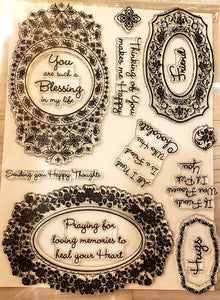 You
are such a
Blessing
in my life
Thinking of You
makes me Happy
Friend
Sending you Happy Thoughts
All I need
is a Friend
Chocolate
If Friends
Were Flowers
I'd Pick
You
Praying for
loving memories to
heal your Heart
Hugs